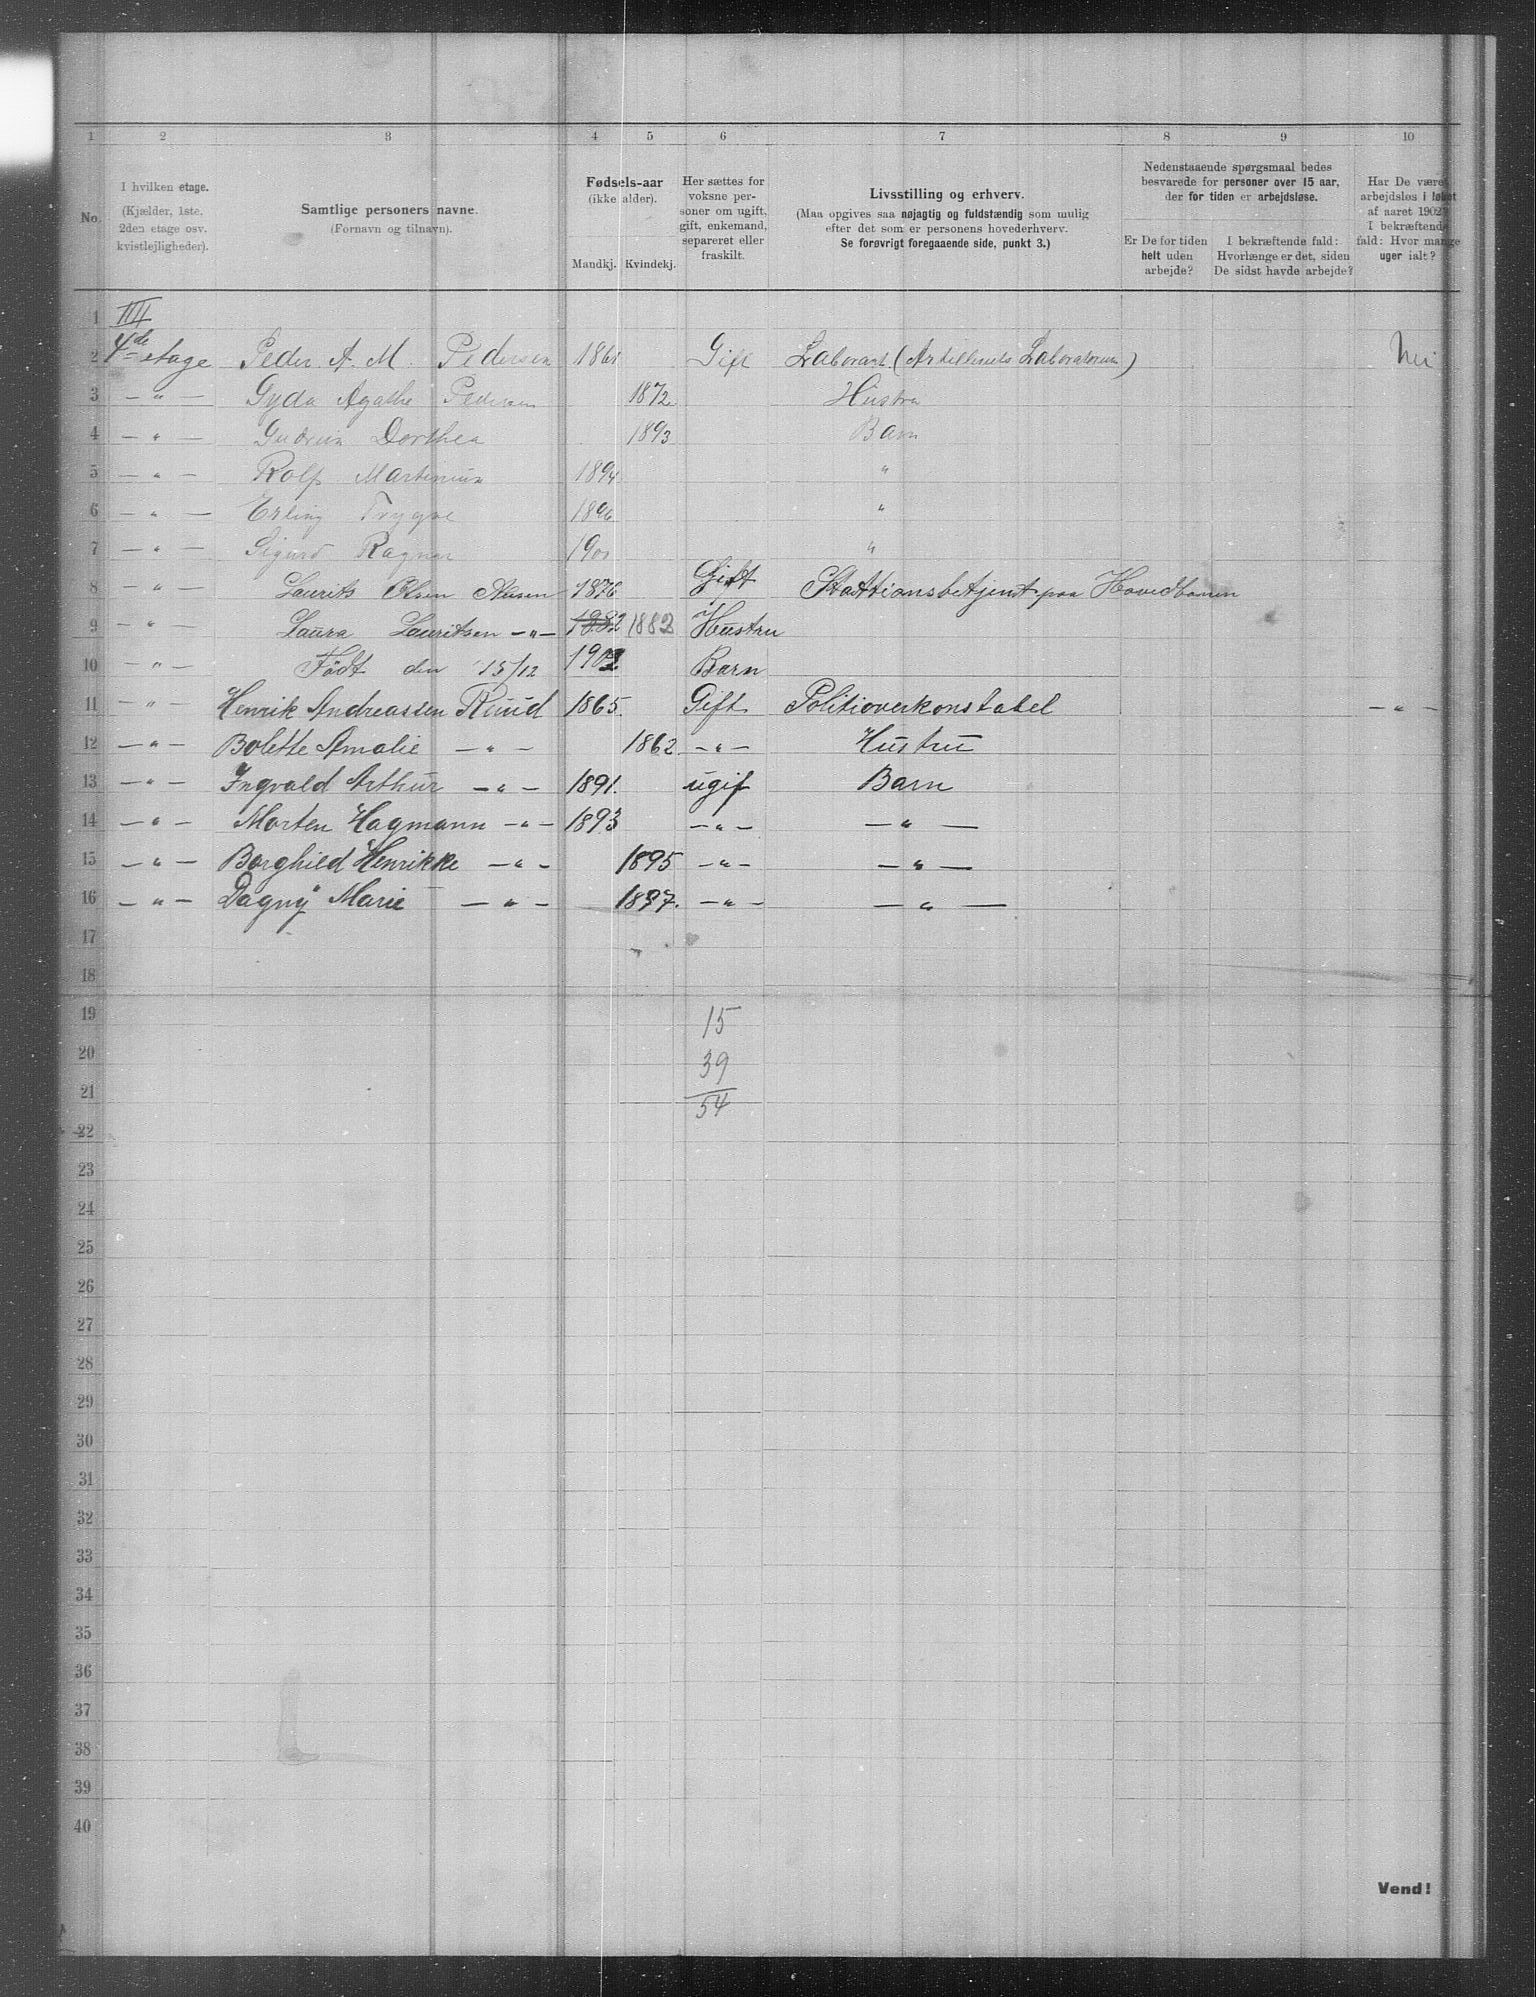 1 2 3 4 5 6 7 8 9 10
No.
I hvilken etage.
(Kjælder, 1ste,
2den etage osv.
kvistlejligheder).
Samtlige personers navne.
(Fornavn og tilnavn).
Fødsels-aar
(ikke alder).
Mandkj. Kvindekj.
Her sættes for
voksne per-
soner om ugift,
gift, enkemand,
separeret eller
fraskilt.
Livsstilling og erhverv.
(Maa opgives saa nøjagtig og fuldstændig som mulig
efter det som er personens hovederhverv.
Se forøvrigt foregaaende side, punkt 3.)
Nedenstaaende spørgsmaal bedes
besvarede for personer over 15 aar,
der for tiden er arbejdsløse.
Er De for tiden
helt uden
arbejde?
I bekræftende fald:
Hvorlænge er det, siden
De sidst havde arbejde?
Har De været
arbejdsløs i løbet
af aaret 1902?
I bekræftende
fald: Hvor mange
uger ialt?
1 IIII
2 4de etage Peder A. M. Pedersen 1861 Gift Laborant (Artilleriets Laboratorium) Nei
3 — " — Gyda Agathe Pedersen 1872 Hustru
4 — " — Gudrun Dorthea 1893 Barn
5 — " — Rolf Martinius 1894 "
6 — " — Erling Trygve 1896 "
7 — " — Sigurd Ragnar "
8 — " — Laurits Olsen 1876 Gift Stattionsbetjent paa Hovedbanen
9 — " — Laura Lauritsen — " — 1882 1882 Hustru
10 — " — Født den 15/12 1902 Barn
11 — " — Henrik Andreassen Ruud 1865. Gift Politioverkonstabel — " —
12 — " — Bolette Amalie — " — 1862 — " — Hustru
13 — " — Ingvald Arthur — " — 1891. ugif Barn
14 — " — Morten Hagmann — " — 1893 — " — — " —
15 — " — Borghild Henrikke — " — 1895 — " — — " —
16 — " — Dagny Marie — " — 1897. — " — — " —
17
18
19 15
20 39
21 54
22
23
24
25
26
27
28
29
30
31
32
33
34
35
36
37
38
39
40
Vend!